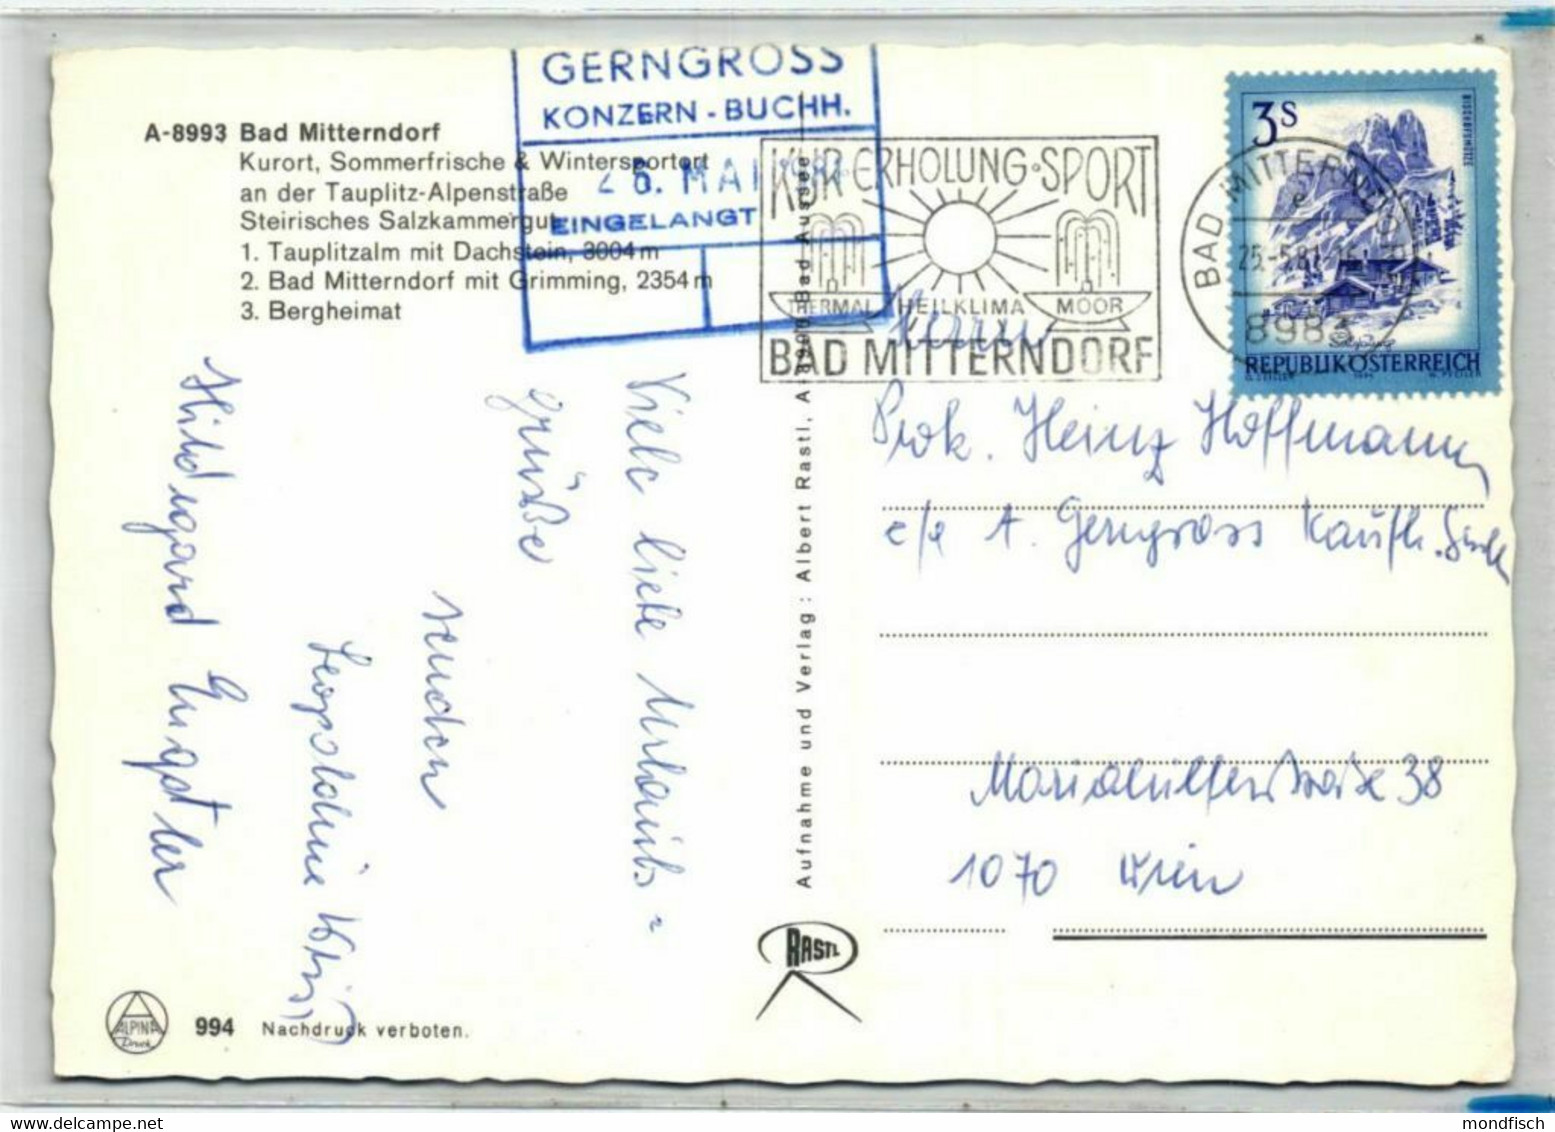 A-8993 Bad Mitterndorf
Kurort, Sommerfrische & Wintersportort
an der Tauplitz-Alpenstraße
Steirisches Salzkammergut
1. Tauplitzalm mit Dachstein, 3004 m
2. Bad Mitterndorf mit Grimming, 2354 m
3. Bergheimat
GERNGROSS
KONZERN - BUCHH.
26. MAI 198
EINGELANGT
KUR ERHOLUNG · SPORT
THERMAL HEILKLIMA MOOR
BAD MITTERNDORF
3 S
BISCHOFSMÜTZE
REPUBLIK ÖSTERREICH
BAD MITTERNDORF
8983
Viele liebe Urlaubs-
grüße
senden
Leopoldine
Hildegard Engstler
Aufnahme und Verlag: Albert Rastl, A-8990 Bad Aussee
Herrn
Prok. Heinz Hoffmann
A. Gerngross Kaufh.
Mariahilferstraße 38
1070 Wien
RASTL
ALPINA
Druck
994 Nachdruck verboten.
mondfisch